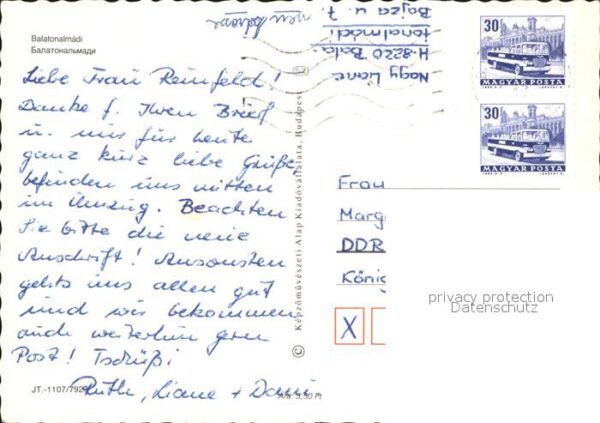 Balatonalmádi
Балатональмади
Liebe Frau Reinfeld!
Danke f. Ihren Brief
u. nur für heute
ganz kurz liebe Grüße,
befinden uns mitten
im Umzug. Beachten
Sie bitte die neue
Anschrift! Ansonsten
gehts uns allen gut
und wir bekommen
auch weiterhin gern
Post! Tschüß!
Ruth, Liane + Dani
JT.-1107/792
Ára: 3,50 Ft
© Képzőművészeti Alap Kiadóvállalata, Budapest
Nagy Liane
H-8220 Bala-
tonalmádi
Bajza u. 7
30f
MAGYAR POSTA
30f
MAGYAR POSTA
Frau
Marg
DDR
König
X
privacy protection
Datenschutz